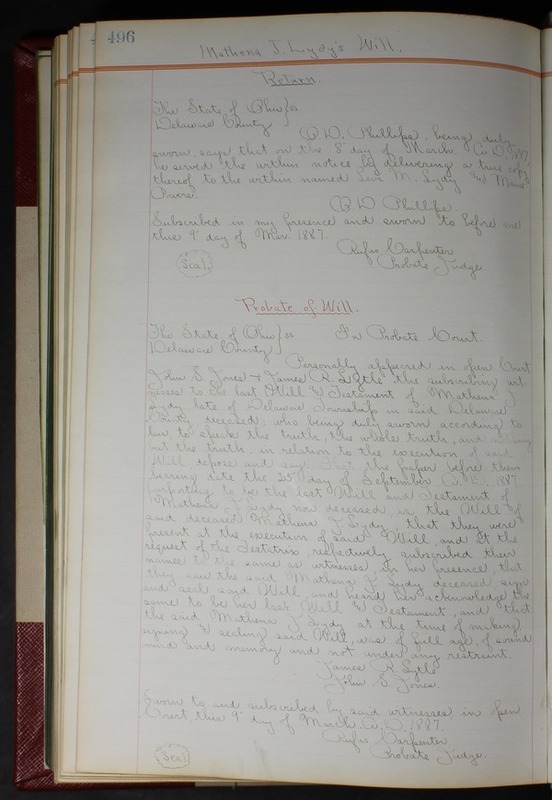 496
Mathena J. Lydy's Will.
Return.
The State of Ohio } ss
Delaware County
B. D. Phillips, being duly
sworn, says that on the 8" day of March A. D. 1887,
he served the within notice by delivering a true copy
thereof to the within named Levi M. Lydy and
B D Phillips.
Subscribed in my presence and sworn to before me
this 9" day of Mar. 1887.
Rufus Carpenter
(Seal) Probate Judge.
Probate of Will.
The State of Ohio } ss In Probate Court.
Delaware County
Personally appeared in open Court
John S. Jones & James R. Lytle the subscribing wit-
nesses to the last Will & Testament of Mathena J.
Lydy late of Delaware Township in said Delaware
County, deceased; who being duly sworn according to
law, to speak the truth, the whole truth, and nothing
but the truth, in relation to the execution of said
Will, depose and say: That the paper before them
bearing date the 25" day of September A. D. 188
purporting to be the last Will and Testament of
Mathena J. Lydy now deceased, is the Will of
said deceased Mathena J. Lydy, that they were
present at the execution of said Will, and at the
request of the Testatrix, respectively subscribed their
names to the same as witnesses, in her presence, that
they saw the said Mathena J. Lydy deceased sign
and seal said Will, and heard her acknowledge the
same to be her last Will & Testament, and that
the said Mathena J. Lydy at the time of making
signing & sealing said Will, was of full age, of sound
mind and memory and not under any restraint.
James R. Lytle
John S. Jones.
Sworn to and subscribed by said witnesses in open
Court, this 9" day of March A. D. 1887.
Rufus Carpenter
(Seal) Probate Judge.